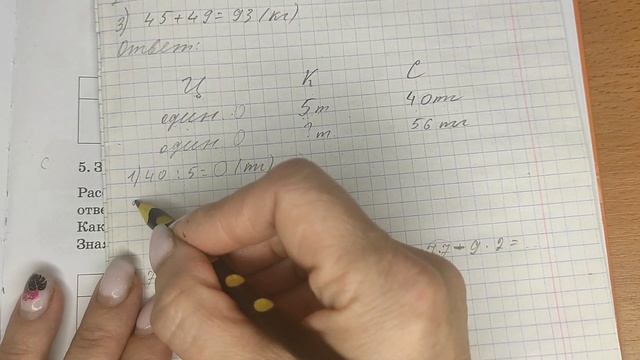 3) 45+49=93 (кг)
Ответ:
Ц К С
один. 0 5 т 40 тг
один 0 ? т. 56 тг
1) 40 : 5 = 0 (тг)
с
5.3
Рас
отве
Как
Зна
77-9·2=
7